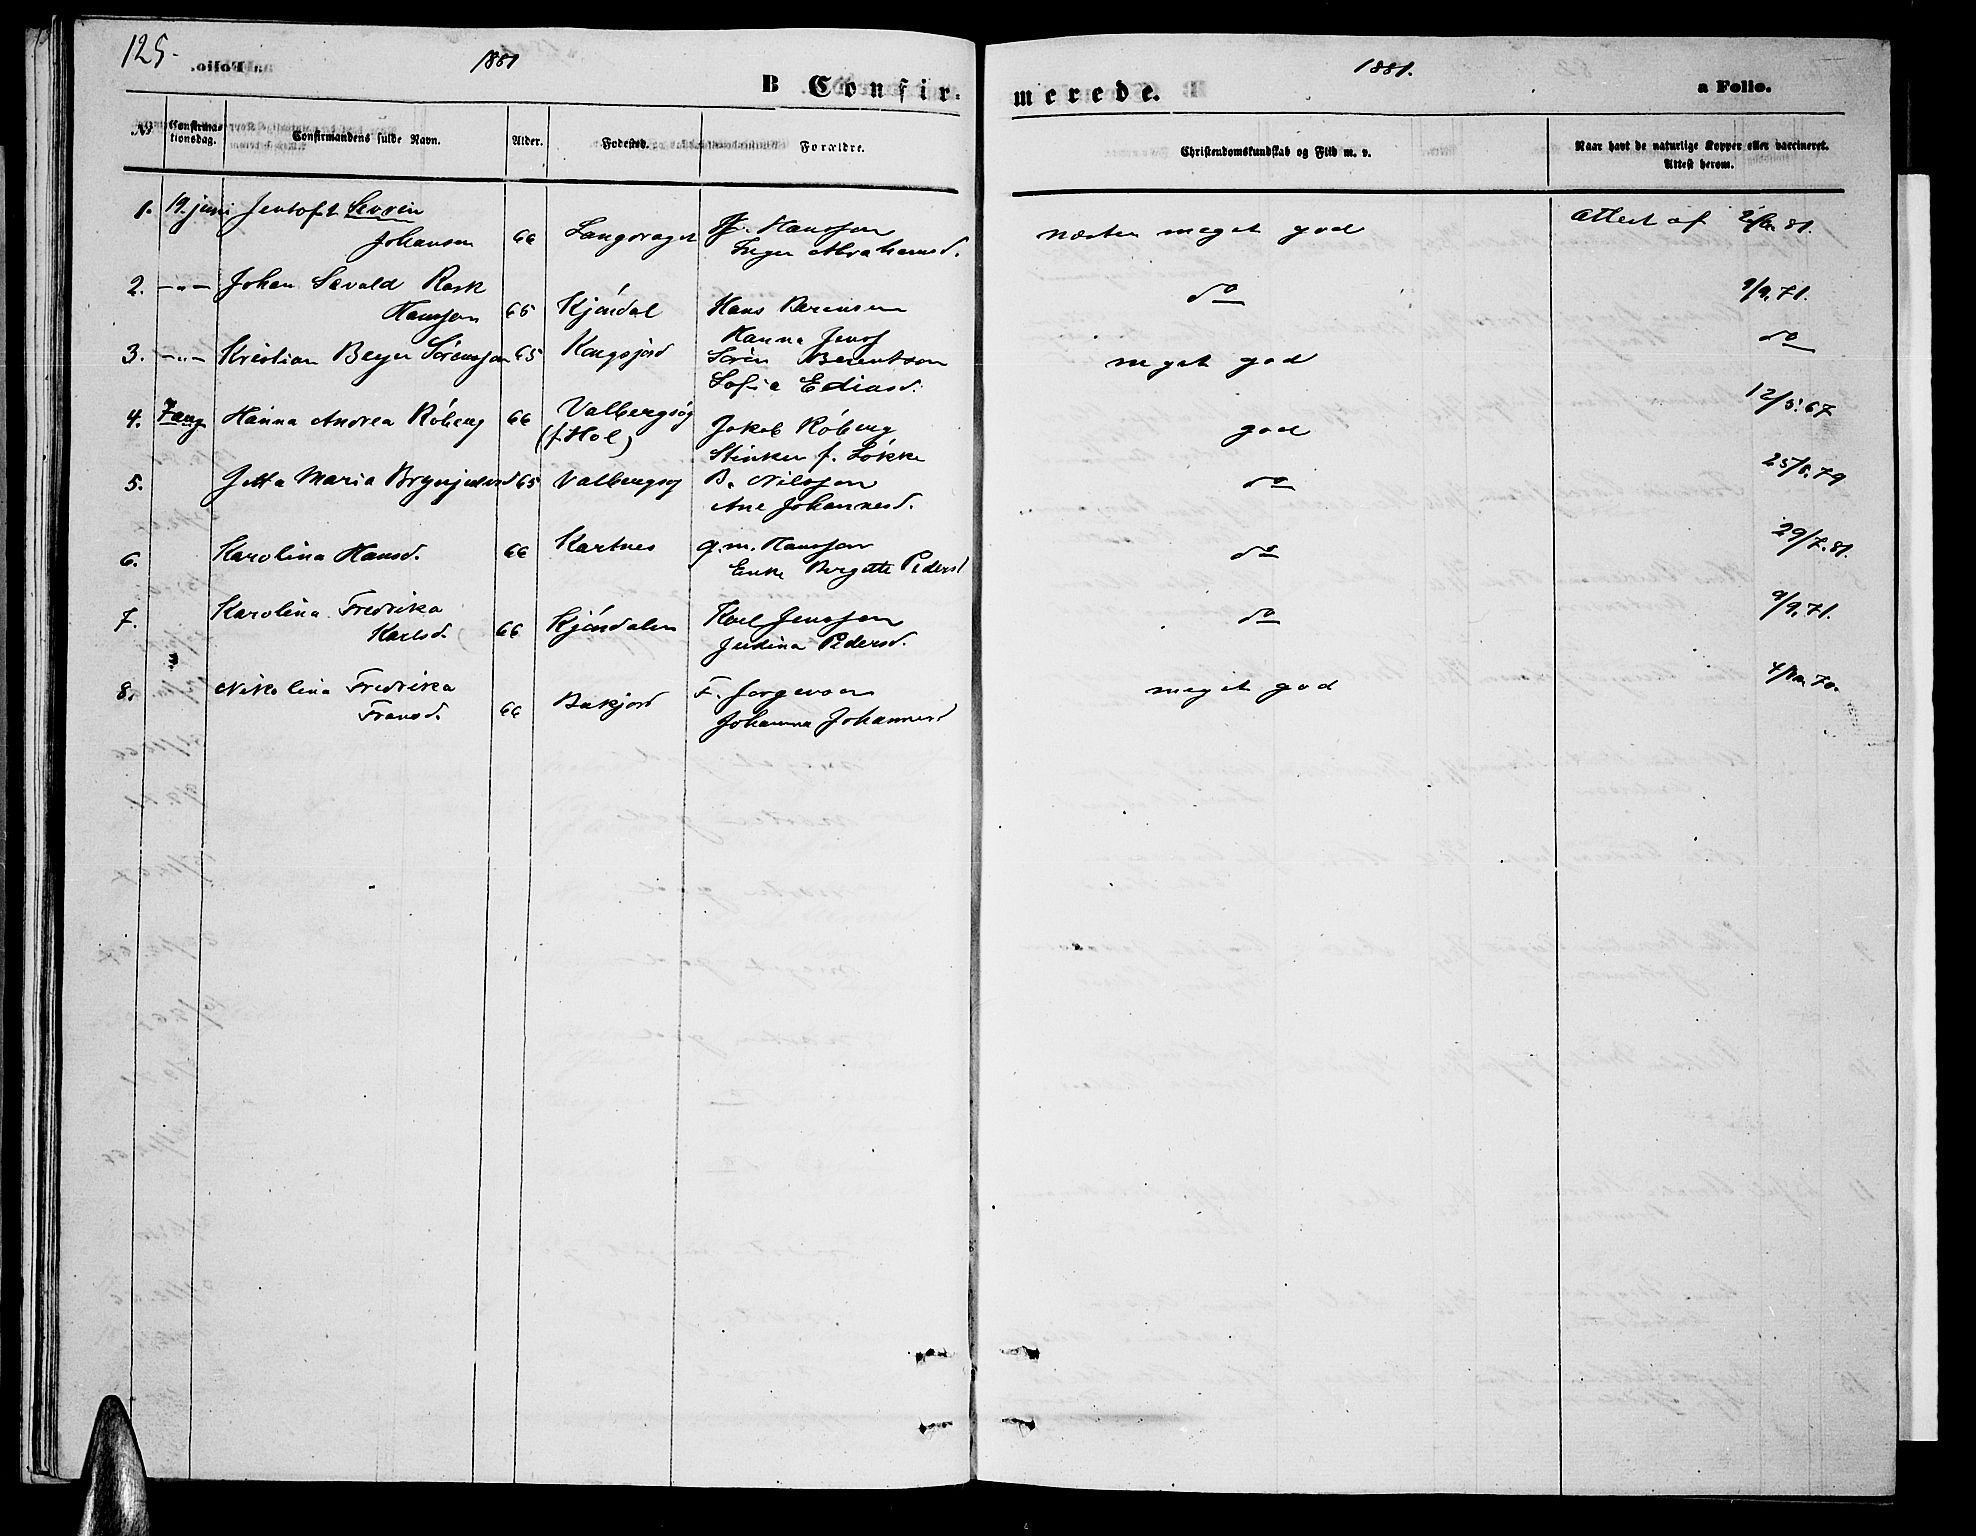 125-
1881
B Confir-
merede.
1881.
a Folio.
No
Confirma-
tionsdag.
Confirmandens fulde Navn.
Alder.
Fødested.
Forældre.
Christendomskundskab og Flid m. v.
Naar havt de naturlige Kopper eller vaccineret.
Attest herom.
1. 19. juni Jentoft Sevrin
Johansen 66 Langvraget Hansson
Inger Abrahamsd.
næsten meget god
Attest af 81.
2. -"- Johan Sevald Rask
Hansson 65 Kjøndal Hans Berensen
Hanna Jensd
do
9/9.71.
3. -"- Kristian Beyer Sørensson 65 Kongsjord Sørin Berentson
Sofia Ediasd.
meget god
do
4. 7 aug Hanna Andrea Röberg 66 Valbergsög
(f. Hol) Jakob Röberg
Stinken f. Løkke
god
12/5.67
5. Jetta Maria Brynjulvsd 65 Valbergsög B. Nilsson
Ane Johannesd.
do
25/6.79
6. Karolina Hansd. 66 Kartnes g.m. Hansson
Enke Bergitte Pedersd
do
29/7.81.
7. Karolina Fredrika
Karlsd. 66 Kjøndalen Karl Jensson
Judina Pedersd.
do
9/9.71.
8. Nikolina Fredrika
Fransd. 66 Bukjord F. Jorgenson
Johanna Johannesd
meget god
70.